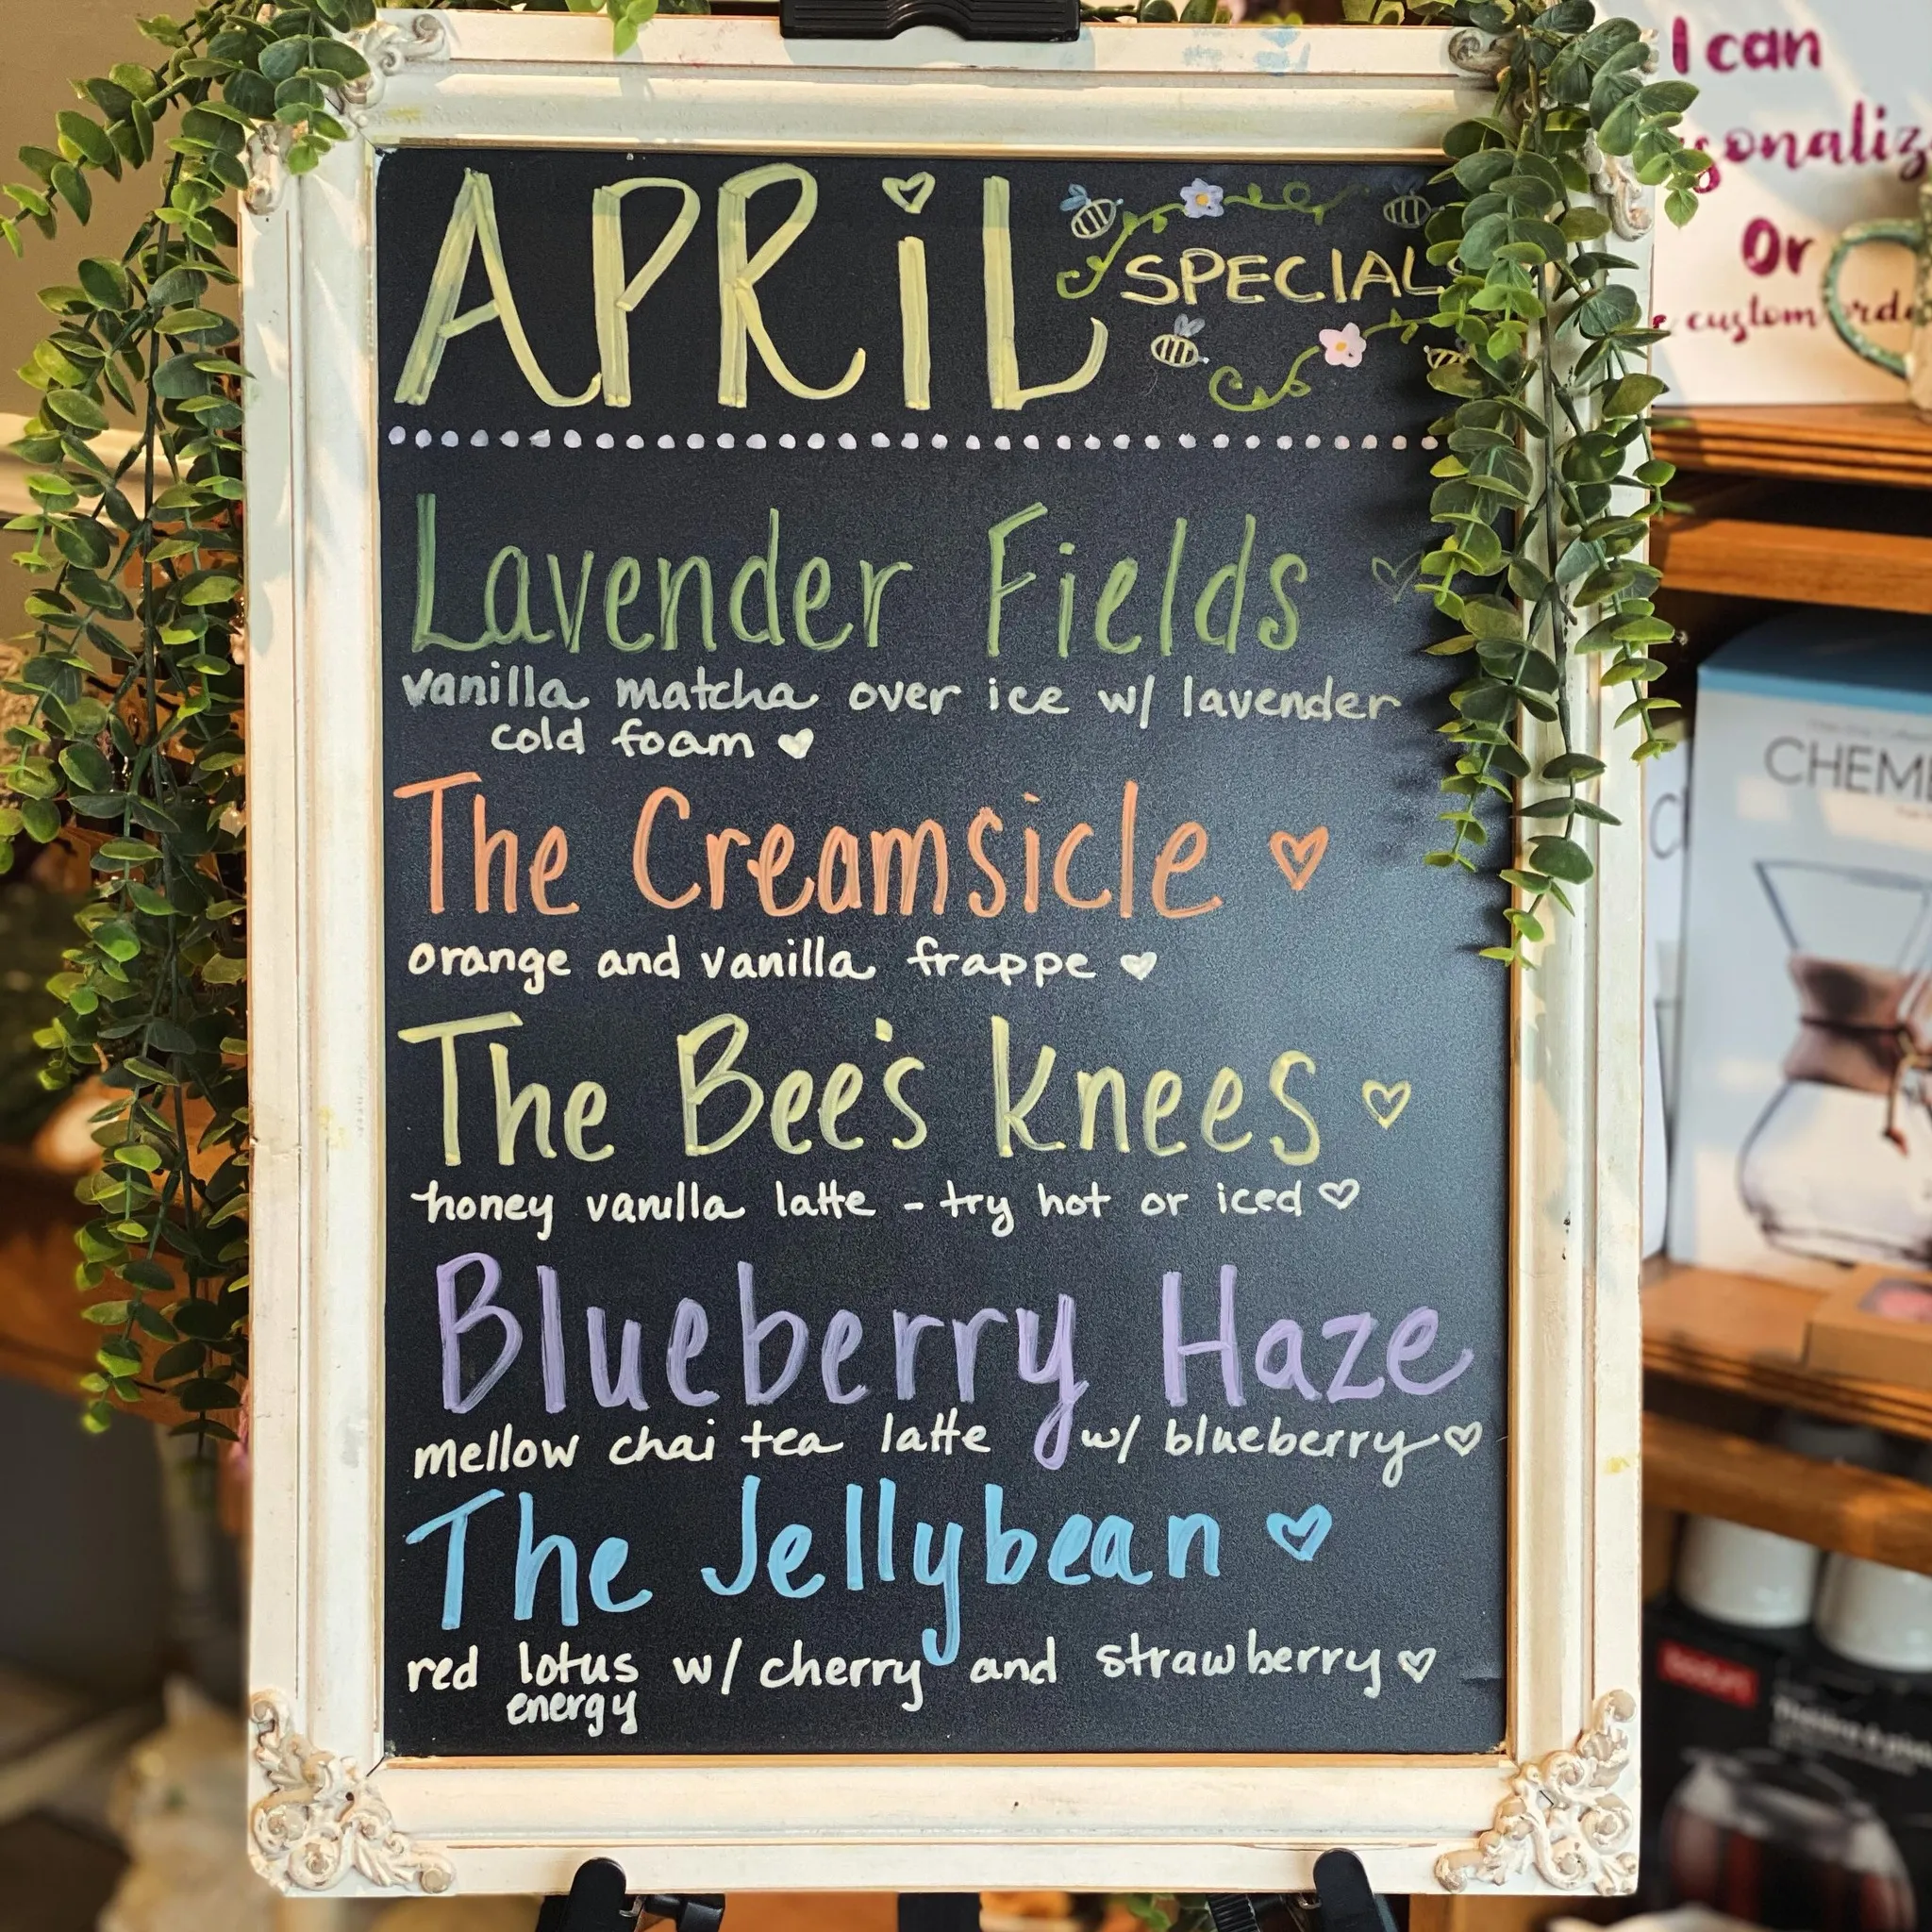 APRiL
SPECIAL
Lavender Fields
vanilla matcha over ice w/ lavender
cold foam
The Creamsicle
orange and vanilla frappe
The Bee's knees
honey vanilla latte - try hot or iced
Blueberry Haze
mellow chai tea latte w/ blueberry
The Jellybean
red lotus w/ cherry and strawberry
energy
I can
sonaliz
Or
custom orde
CHEME
bodum